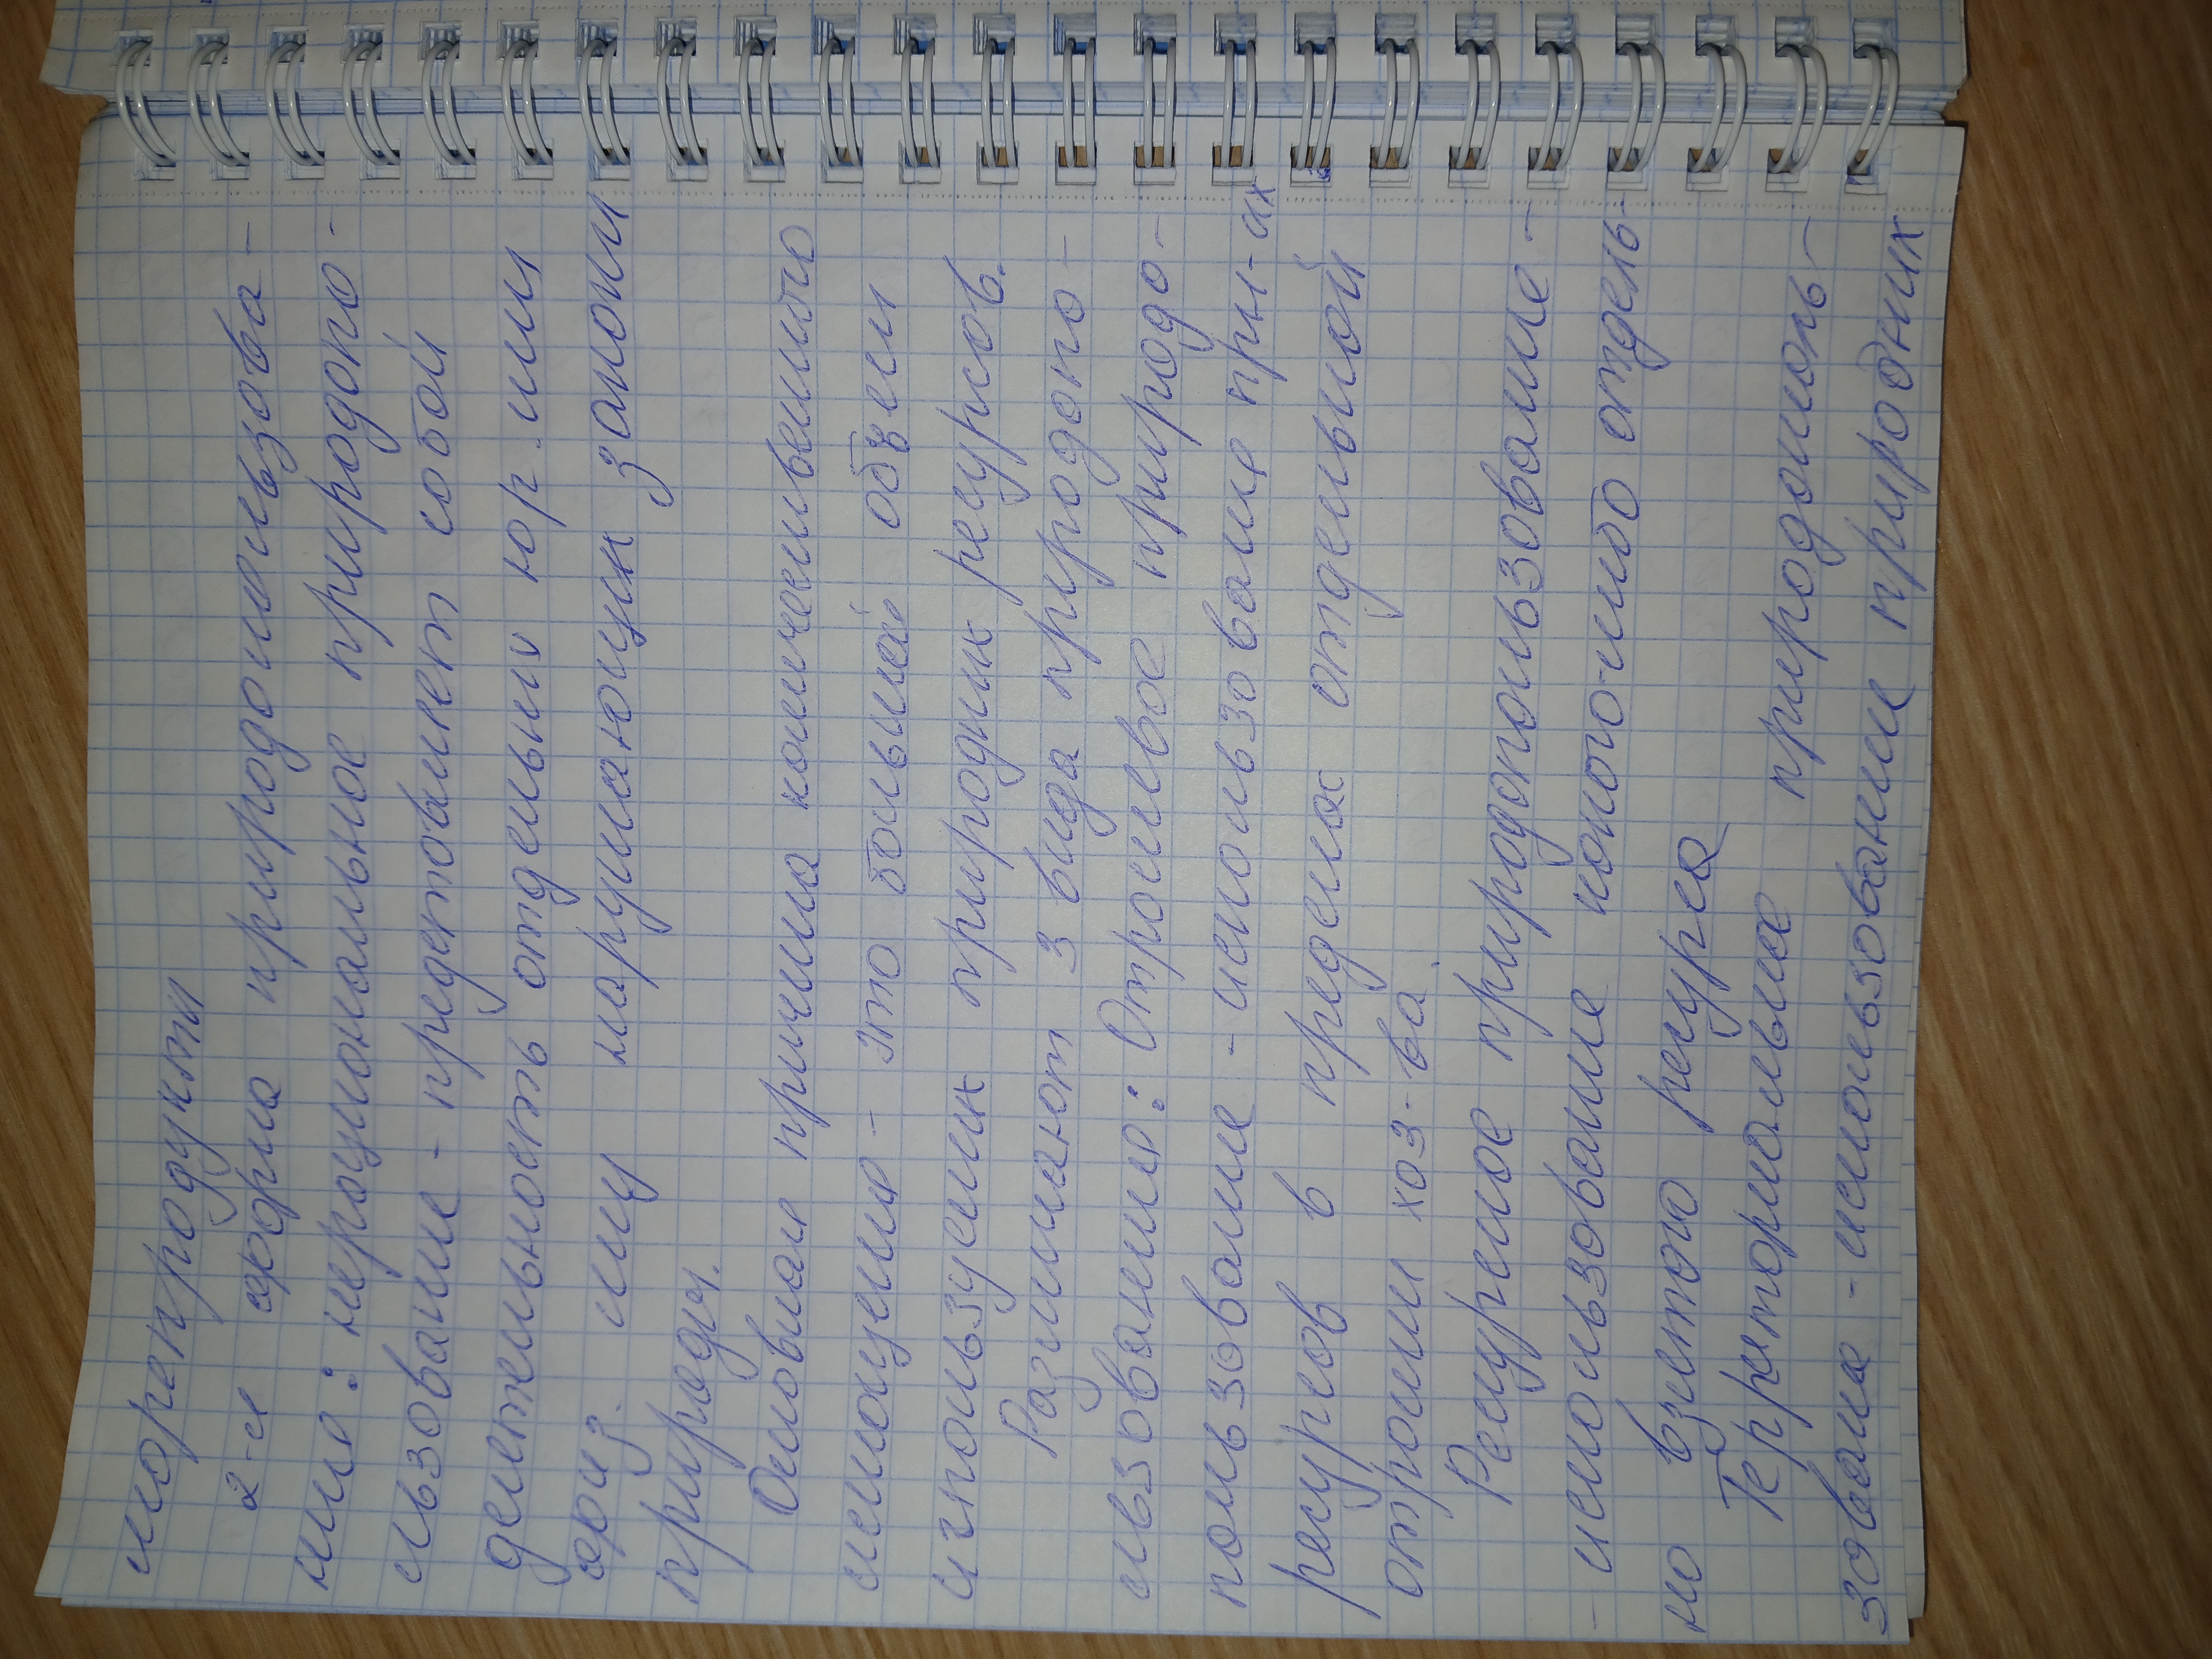 морепродукты
2-я форма природопользова-
ния: нерациональное природопо-
льзование - представляет собой
деятельность отдельных юр. или
физ. лиц нарушающих законы
природы.
Основная причина количественного
истощения - это больший объем
используемых природных ресурсов.
Различают 3 вида природопо-
льзования: Отраслевое природо-
пользование - использование при-ых
ресурсов в пределах отдельной
отрасли хоз-ва.
Ресурсное природопользование -
- использование какого-либо отдель-
но взятого ресурса
Территориальное природополь-
зование - использовании природных